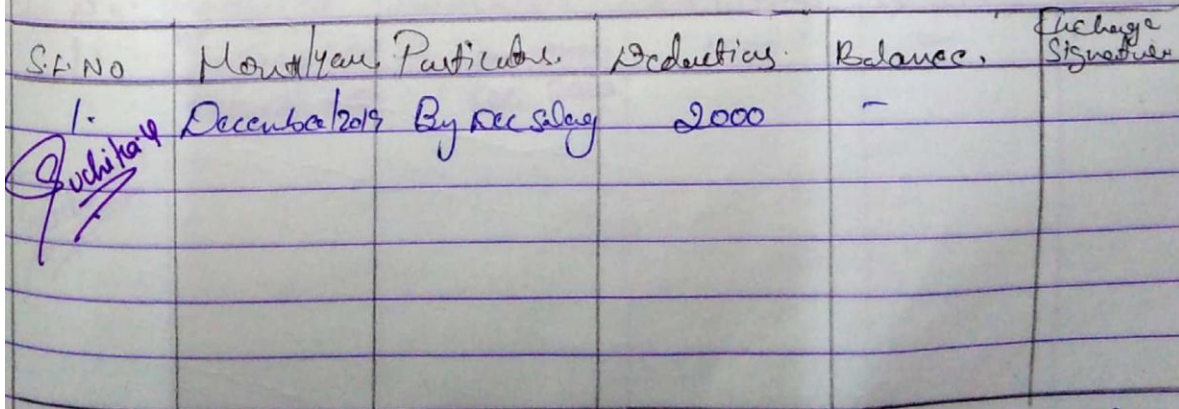 S.L. NO Month/year Particulars. Deductions. Balance. Incharge Signature
1. December/2019 By Dec salary 2000 -